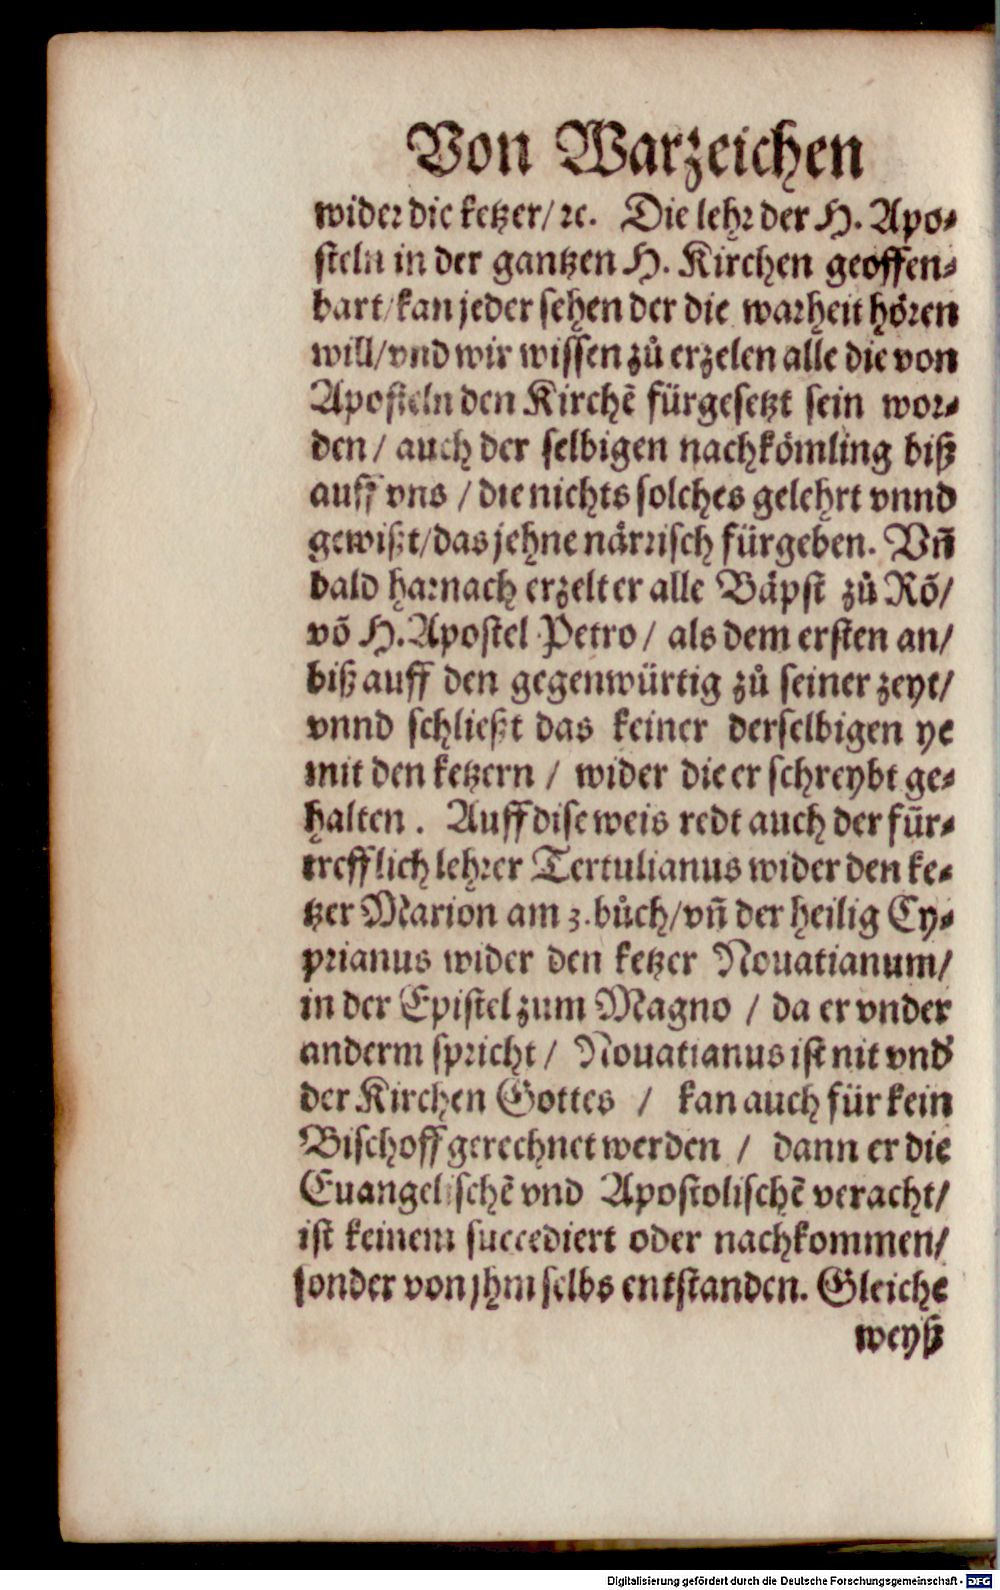 Von Warzeichen
wider die ketzer/ ꝛc. Die lehr der H. Apo⸗
steln in der gantzen H. Kirchen geoffen⸗
bart/ kan jeder sehen der die warheit hören
will/ vnd wir wissen zů erzelen alle die von
Aposteln den Kirchē fürgesetzt sein wor⸗
den / auch der selbigen nachkömling biß
auff vns / die nichts solches gelehrt vnnd
gewißt/ das jehne närrisch fürgeben. Vñ
bald harnach erzelt er alle Bäpst zů Rõ/
võ H. Apostel Petro / als dem ersten an/
biß auff den gegenwürtig zů seiner zeyt/
vnnd schließt das keiner derselbigen ye
mit den ketzern / wider die er schreybt ge⸗
halten. Auff dise weis redt auch der für⸗
trefflich lehrer Tertulianus wider den ke⸗
tzer Marion am 3. bůch/ vñ der heilig Cy⸗
prianus wider den ketzer Nouatianum/
in der Epistel zum Magno / da er vnder
anderm spricht / Nouatianus ist nit vnd'
der Kirchen Gottes / kan auch für kein
Bischoff gerechnet werden / dann er die
Euangelischē vnd Apostolischē veracht/
ist keinem succediert oder nachkommen/
sonder von jhm selbs entstanden. Gleiche
weyß
Digitalisierung gefördert durch die Deutsche Forschungsgemeinschaft - DFG